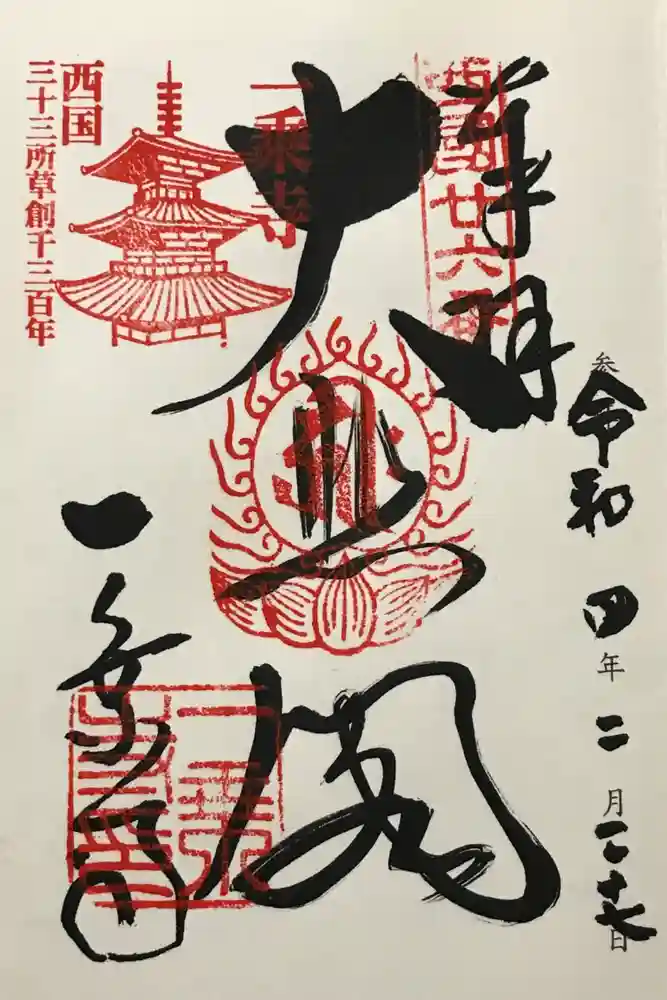 令和四年二月二十七日
奉拝
西國廿六番
大悲閣
一乗寺
一乗寺
西国
三十三所草創千三百年